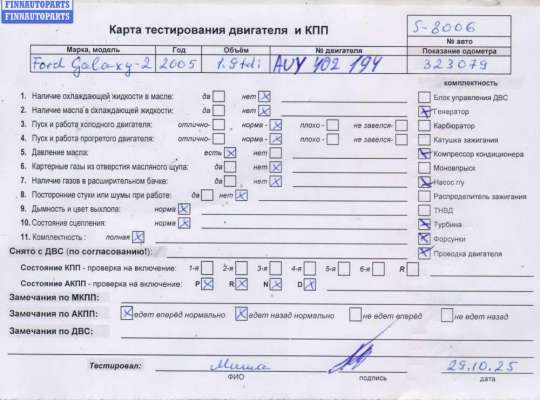 FINNAUTOPARTS
FINNAUTOPARTS
Карта тестирования двигателя и КПП
S-8006
№ авто
Марка, модель Год Объём № двигателя Показание одометра
Ford Galaxy-2 2005 1.9tdi AUY 402 194 323079
комплектность
1. Наличие охлаждающей жидкости в масле: да нет
Блок управления ДВС
2. Наличие масла в охлаждающей жидкости: да нет
Генератор
3. Пуск и работа холодного двигателя: отлично- норма - плохо - не завелся-
Карбюратор
4. Пуск и работа прогретого двигателя: отлично- норма - плохо - не завелся-
Катушка зажигания
5. Давление масла: есть нет
Компрессор кондиционера
6. Картерные газы из отверстия масляного щупа: да нет
Моновпрыск
7. Наличие газов в расширительном бачке: да нет
Насос г/у
8. Посторонние стуки или шумы при работе: да нет
Распределитель зажигания
9. Дымность и цвет выхлопа: норма
ТНВД
10. Состояние сцепления: норма
Турбина
11. Комплектность : полная
Форсунки
Снято с ДВС (по согласованию!):
Проводка двигателя
Состояние КПП - проверка на включение: 1-я 2-я 3-я 4-я 5-я 6-я R
Состояние АКПП - проверка на включение: P R N D
Замечания по МКПП:
Замечания по АКПП: едет вперёд нормально едет назад нормально не едет вперёд не едет назад
Замечания по ДВС:
Тестировал: Миша 29.10.25
ФИО подпись дата